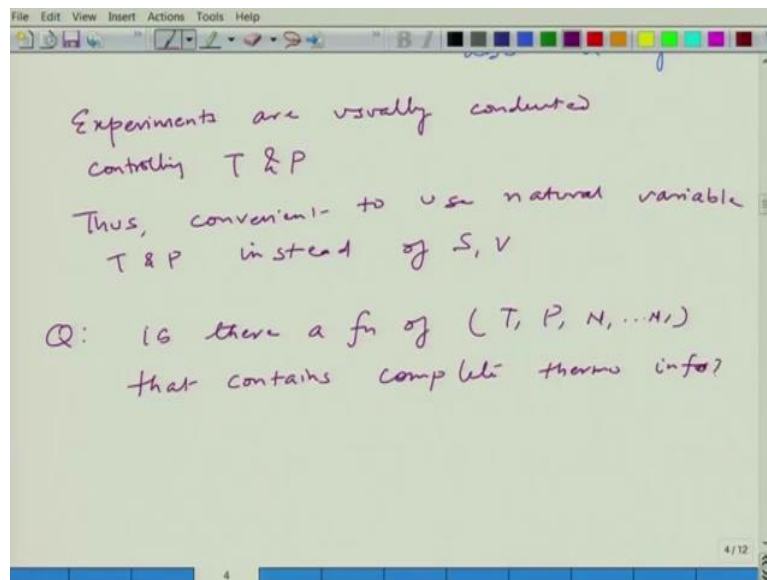 File Edit View Insert Actions Tools Help
Experiments are usually conducted
controlling T & P
Thus, convenient to use natural variable
T & P instead of S, V
Q: is there a fn of (T, P, N, ... N,)
that contains complete thermo info?
4/12
4